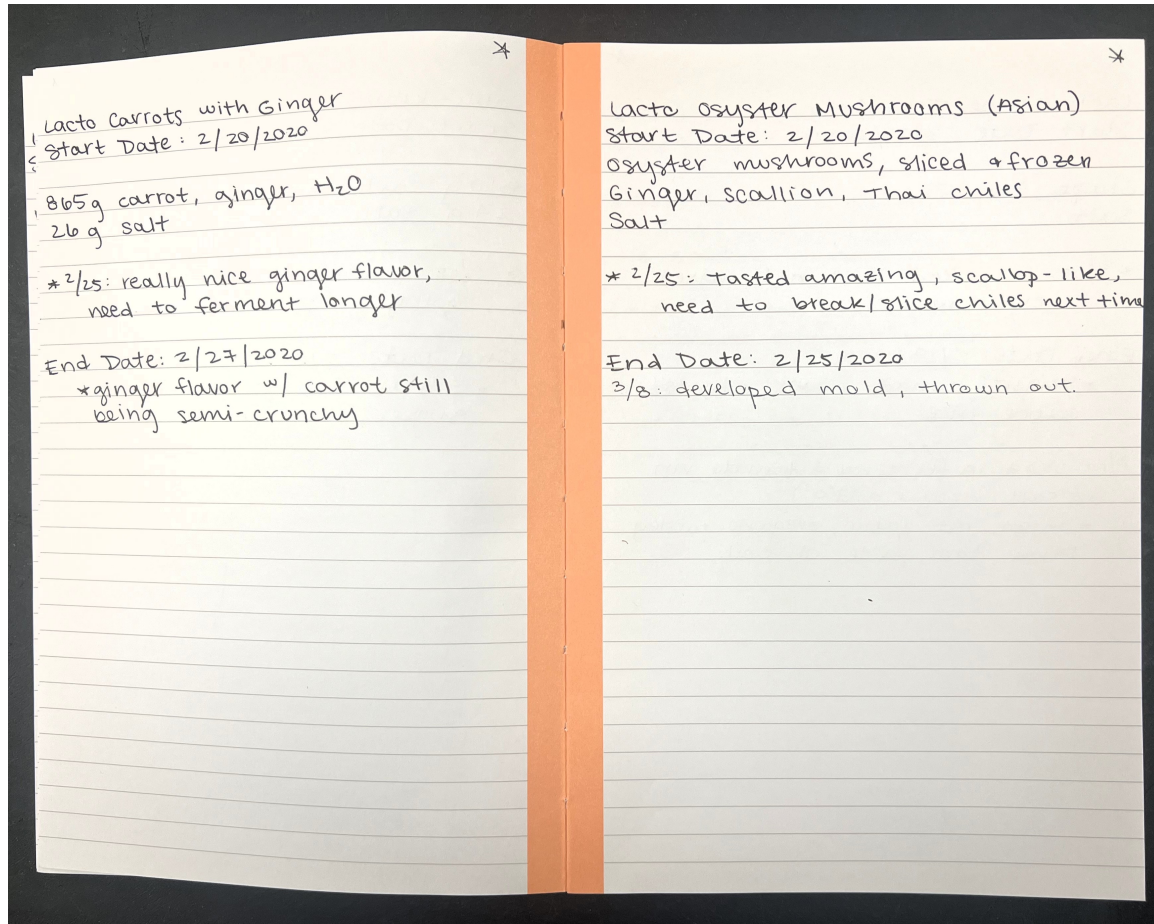 Lacto Carrots with Ginger
Start Date: 2/20/2020
865g carrot, ginger, H₂O
26g salt
* 2/25: really nice ginger flavor,
need to ferment longer
End Date: 2/27/2020
* ginger flavor w/ carrot still
being semi-crunchy
Lacto Osyster Mushrooms (Asian)
Start Date: 2/20/2020
Osyster mushrooms, sliced & frozen
Ginger, scallion, Thai chiles
Salt
* 2/25: Tasted amazing, scallop-like,
need to break/slice chiles next time
End Date: 2/25/2020
3/8: developed mold, thrown out.